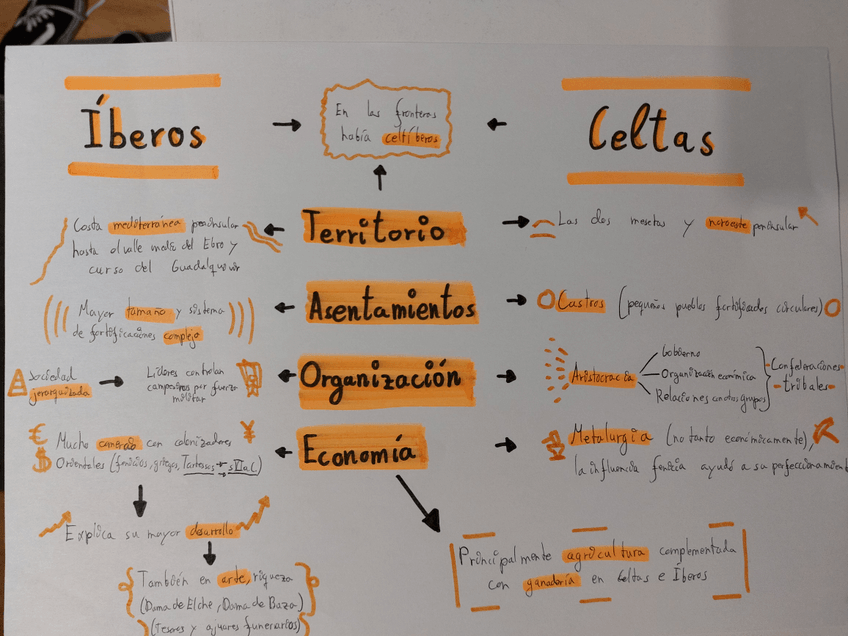 Íberos
En las fronteras
había celtíberos
Celtas
Costa mediterránea peninsular
hasta el valle medio del Ebro y
curso del Guadalquivir
Territorio
Las dos mesetas y noroeste peninsular
Mayor tamaño y sistema
de fortificaciones complejo
Asentamientos
Castros (pequeños pueblos fortificados circulares)
Sociedad
jerarquizada
Líderes controlan
campesinos por fuerza
militar
Organización
Aristocracia
Gobierno
Organización económica
Relaciones con otros grupos
Confederaciones
tribales
€ ¥
$
Mucho comercio con colonizadores
Orientales (fenicios, griegos, Tartessos
Economía
Metalurgia (no tanto económicamente),
la influencia fenicia ayudó a su perfeccionamient
Explica su mayor desarrollo
También en arte, riqueza
(Dama de Elche, Dama de Baza)
(Tesoros y ajuares funerarios)
Principalmente agricultura complementada
con ganadería en Celtas e Íberos